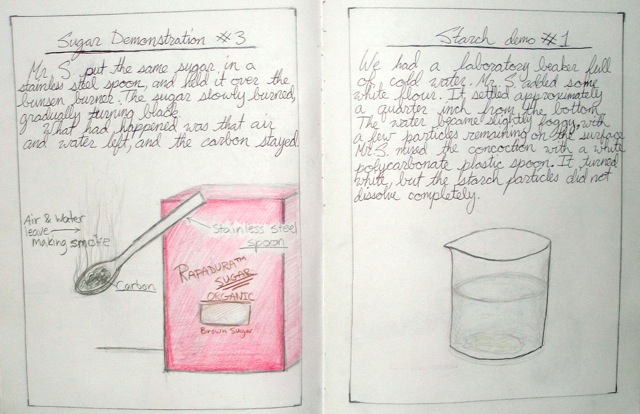 Sugar Demonstration #3
Mr. S. put the same sugar in a
stainless steel spoon, and held it over the
bunsen burner. The sugar slowly burned,
gradually turning black.
What had happened was that air
and water left, and the carbon stayed.
Air & Water
leave
making smoke
Carbon
Stainless steel
spoon
RAPADURA™
SUGAR
ORGANIC
Brown Sugar
Starch demo #1
We had a laboratory beaker full
of cold water. Mr. S. added some
white flour. It settled approximately
a quarter inch from the bottom.
The water became slightly foggy, with
a few particles remaining on the surface.
Mr. S. mixed the concoction with a white
polycarbonate plastic spoon. It turned
white, but the starch particles did not
dissolve completely.